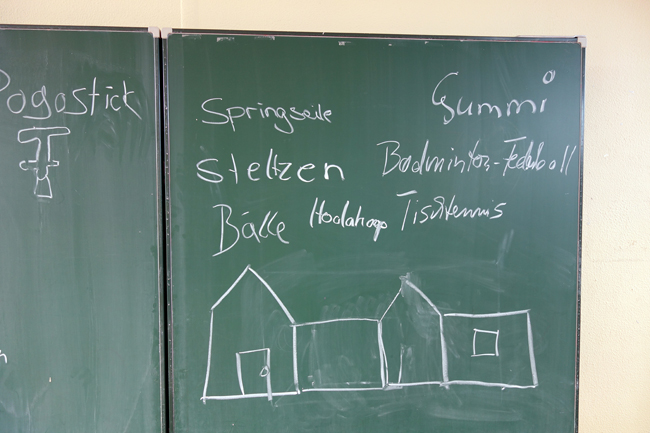 Pogostick
Springseile
Gummi
Steltzen
Badminton-Federball
Bälle
Hoolahop
Tischtennis